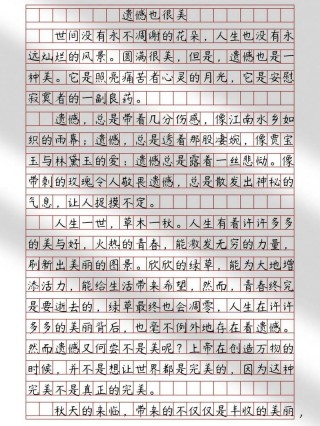 遗憾也很美
世间没有永不凋谢的花朵，人生也没有永
远灿烂的风景。圆满很美，但是，遗憾也是一
种美。它是照亮痛苦者心灵的月光，它是安慰
寂寞者的一副良药。
遗憾，总是带着几分伤感，像江南水乡如
织的雨幕；遗憾，总是透着那股凄婉，像贾宝
玉与林黛玉的爱；遗憾总是露着一丝悲恸。像
带刺的玫瑰令人敬畏遗憾，总是散发出神秘的
气息，让人捉摸不定。
人生一世，草木一秋。人生有着许许多多
的美与好，火热的青春，能激发无穷的力量，
刷新出美丽的图景。欣欣的绿草，能为大地增
添活力，能给生活带来希望，然而，青春终究
是要逝去的，绿草最终也会凋零，人生在许许
多多的美丽背后，也毫不例外地存在着遗憾。
然而遗憾又何尝不是美呢？上帝在创造万物的
时候，并不是想让世界都是完美的，因为这种
完美不是真正的完美。
秋天的来临，带来的不仅仅是丰收的美丽，